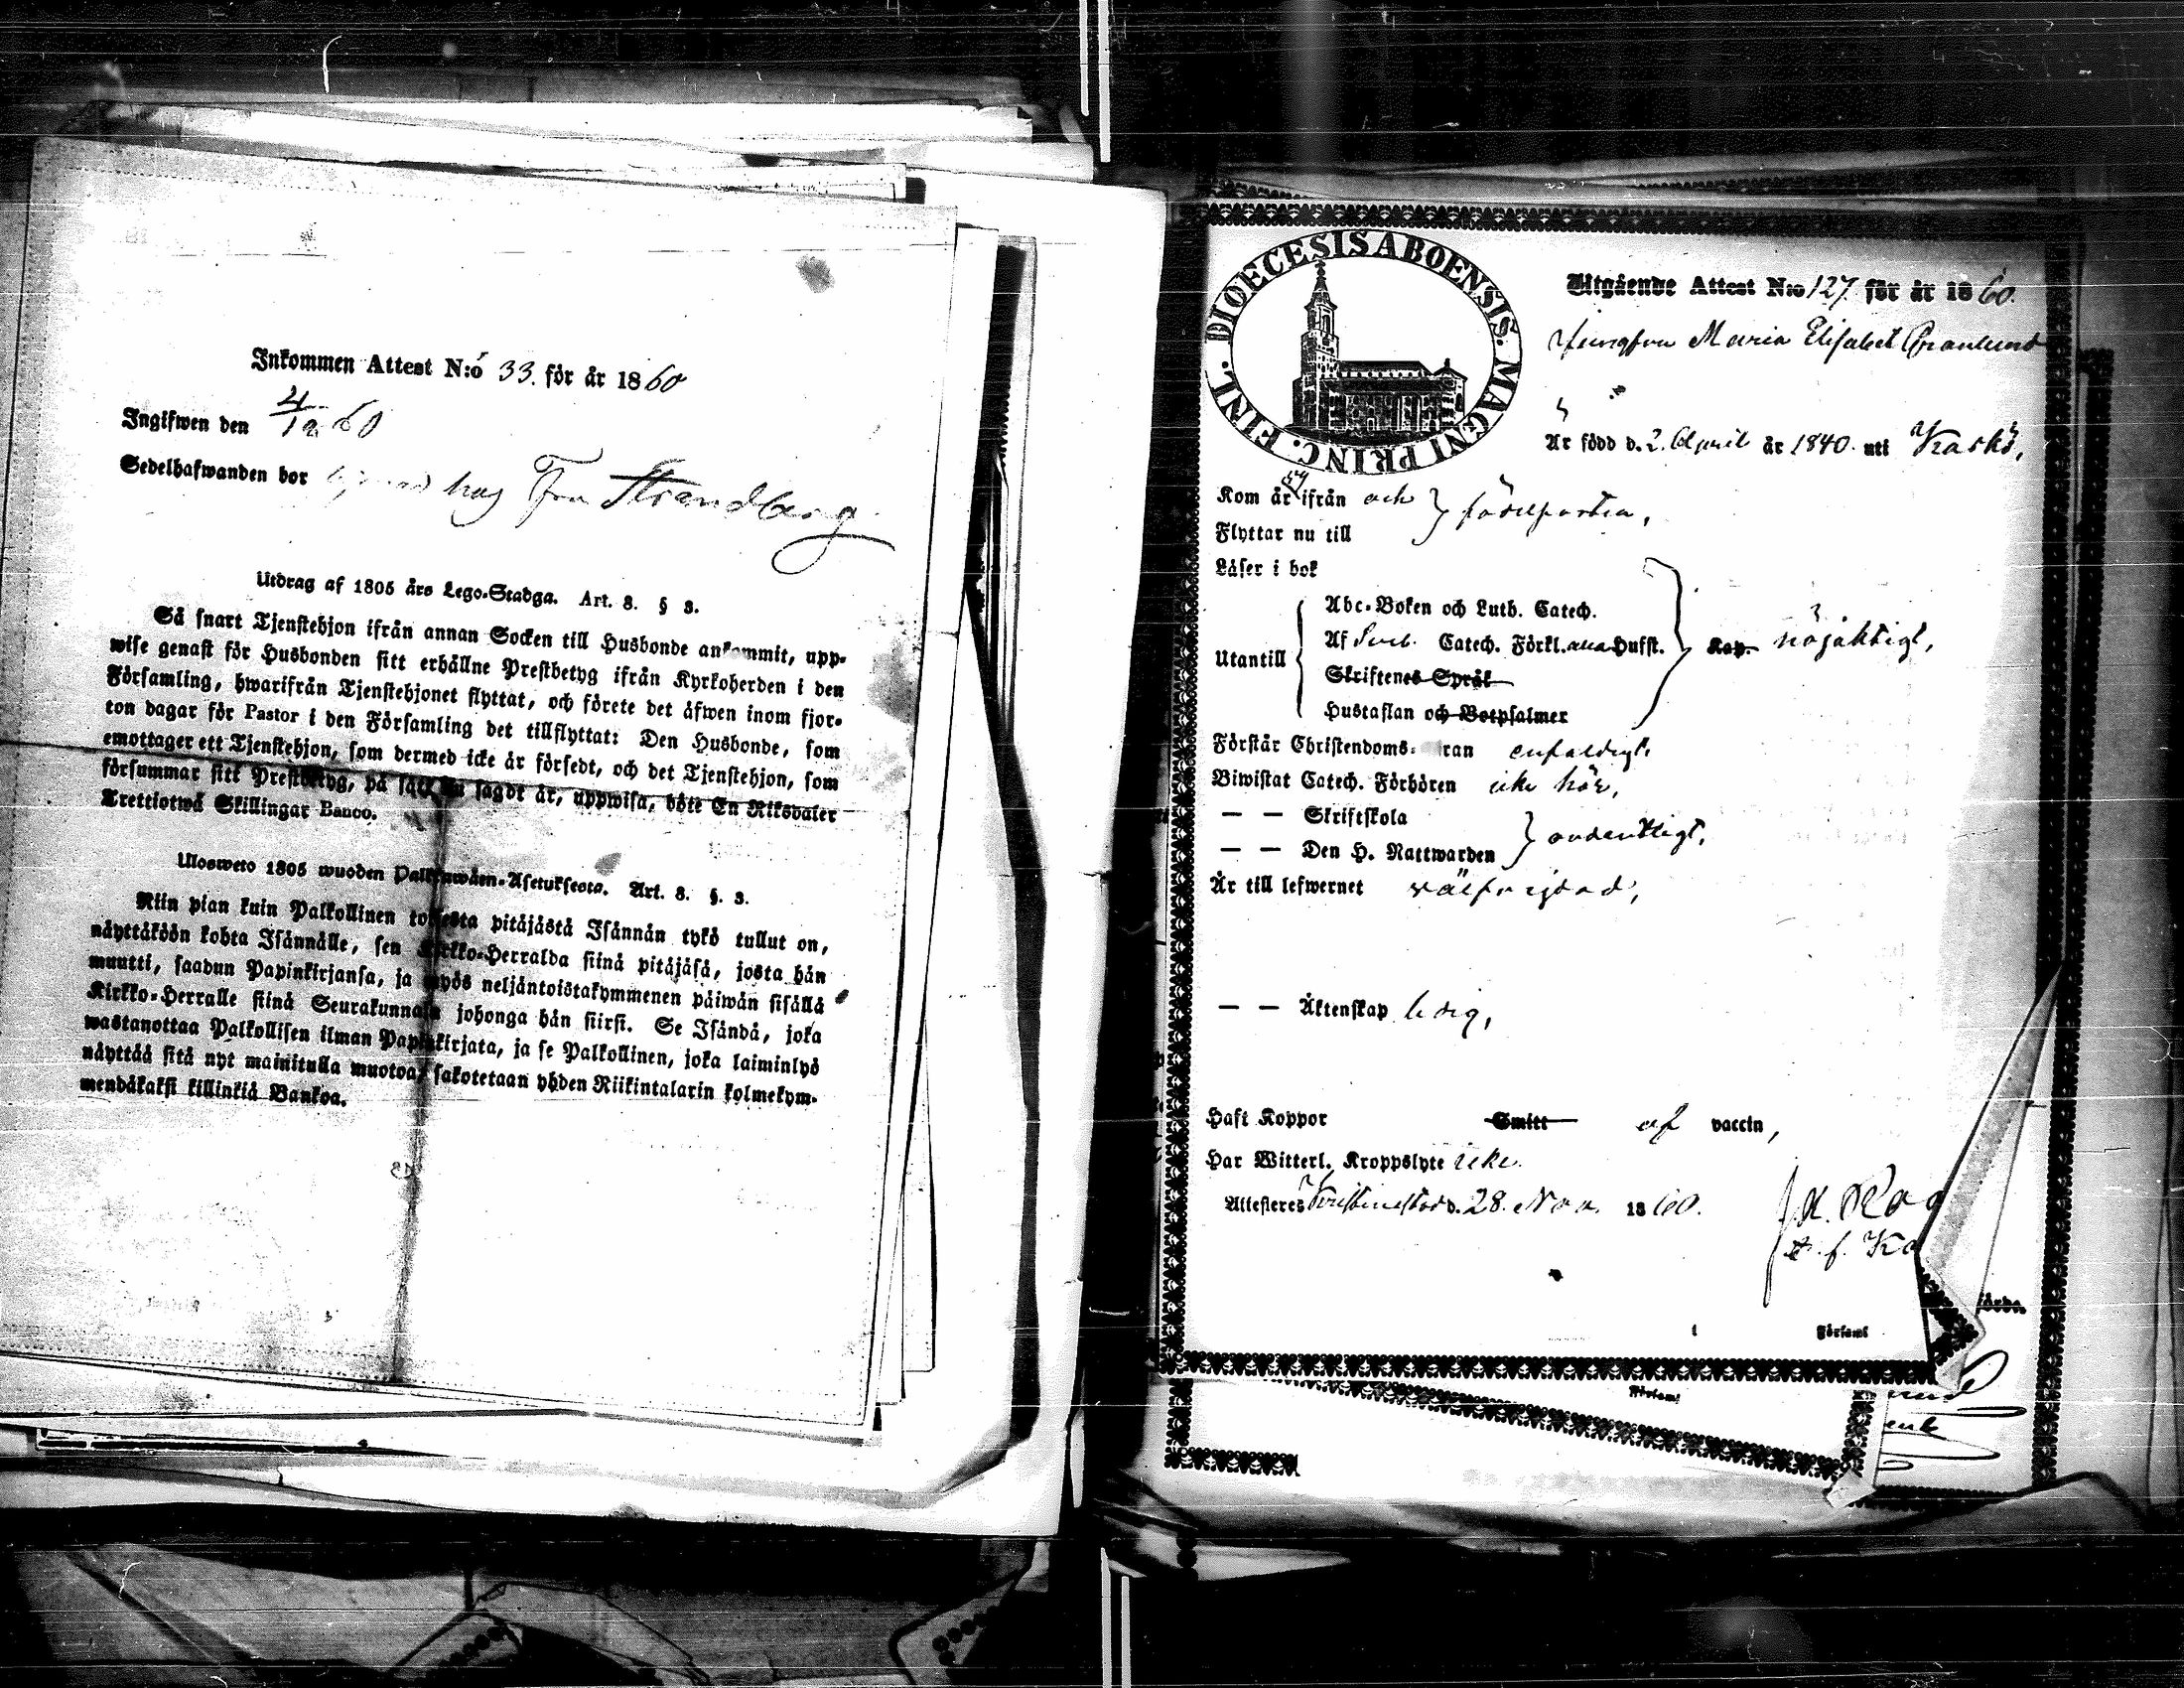 Inkommen Attest N:o 33. för år 1860
Ingifwen den 4/12 60
Sedelhafwanden bor hos Fru Strandberg
Utdrag af 1805 års Lego-Stadga. Art. 8. § 3.
Så snart Tjenstehjon ifrån annan Socken till Husbonde ankommit, upp-
wise genast för Husbonden sitt erhållne Prestbetyg ifrån Kyrkoherden i den
Församling, hwarifrån Tjenstehjonet flyttat, och förete det äfwen inom fjor-
ton dagar för Pastor i den Församling det tillflyttat: Den Husbonde, som
emottager ett Tjenstehjon, som dermed icke är försedt, och det Tjenstehjon, som
försummar sitt Prestbetyg, på sätt nu sagdt är, uppwisa, böte En Riksdaler
Trettiotwå Skillingar Banco.
Ulosweto 1805 wuoden Palkanwäen-Asetuksesta. Art. 8. §. 3.
Niin pian kuin Palkollinen toisesta pitäjästä Isännän tykö tullut on,
näyttäköön kohta Isännälle, sen Kirkko-Herralda siinä pitäjäsä, josta hän
muutti, saadun Papinkirjansa, ja myös neljäntoistakymmenen päiwän sisällä
Kirkko-Herralle siinä Seurakunnasa johonga hän siirsi. Se Isändä, joka
wastanottaa Palkollisen ilman Papinkirjata, ja se Palkollinen, joka laiminlyö
näyttää sitä nyt mainitulla muotoa, sakotetaan yhden Riikintalarin kolmekym-
mendäkaksi killinkiä Bankoa.
DIOECESIS ABOENSIS. MAGNI PRINC. FINL.
Utgående Attest N:o 127 för år 1860.
Jungfru Maria Elisabet Granlund
Är född d. 2. April år 1840. uti Kaskö,
Kom år 59 ifrån och } födelseorten,
Flyttar nu till
Läser i bok
Utantill
Abc-Boken och Luth. Catech.
Af Sveb. Catech. Förkl. Hufst.
Kap. nöjaktigt,
Skriftenes Språk
Hustaflan och Botpsalmer
Förstår Christendoms- ran enfaldigt.
Biwistat Catech. Förhören icke här,
— — Skriftskola
— — Den H. Nattwarden } ordentligt,
Är till lefwernet välfrejdad,
— — Äktenskap ledig,
Haft Koppor Smitt af vaccin,
Har Witterl. Kroppslyte icke.
Attesteres Kristinestad d. 28. Nov. 1860.
i Församl